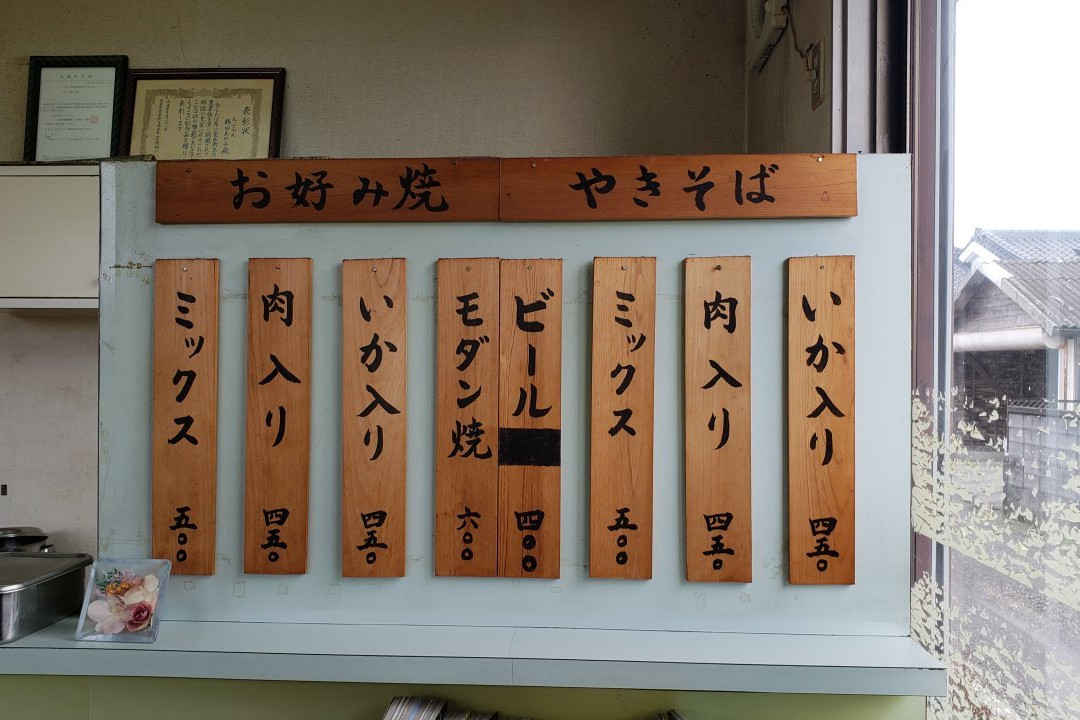 表彰状
お好み焼
やきそば
ミックス 五〇〇
肉入り 四五〇
いか入り 四五〇
モダン焼 六〇〇
ビール 四〇〇
ミックス 五〇〇
肉入り 四五〇
いか入り 四五〇